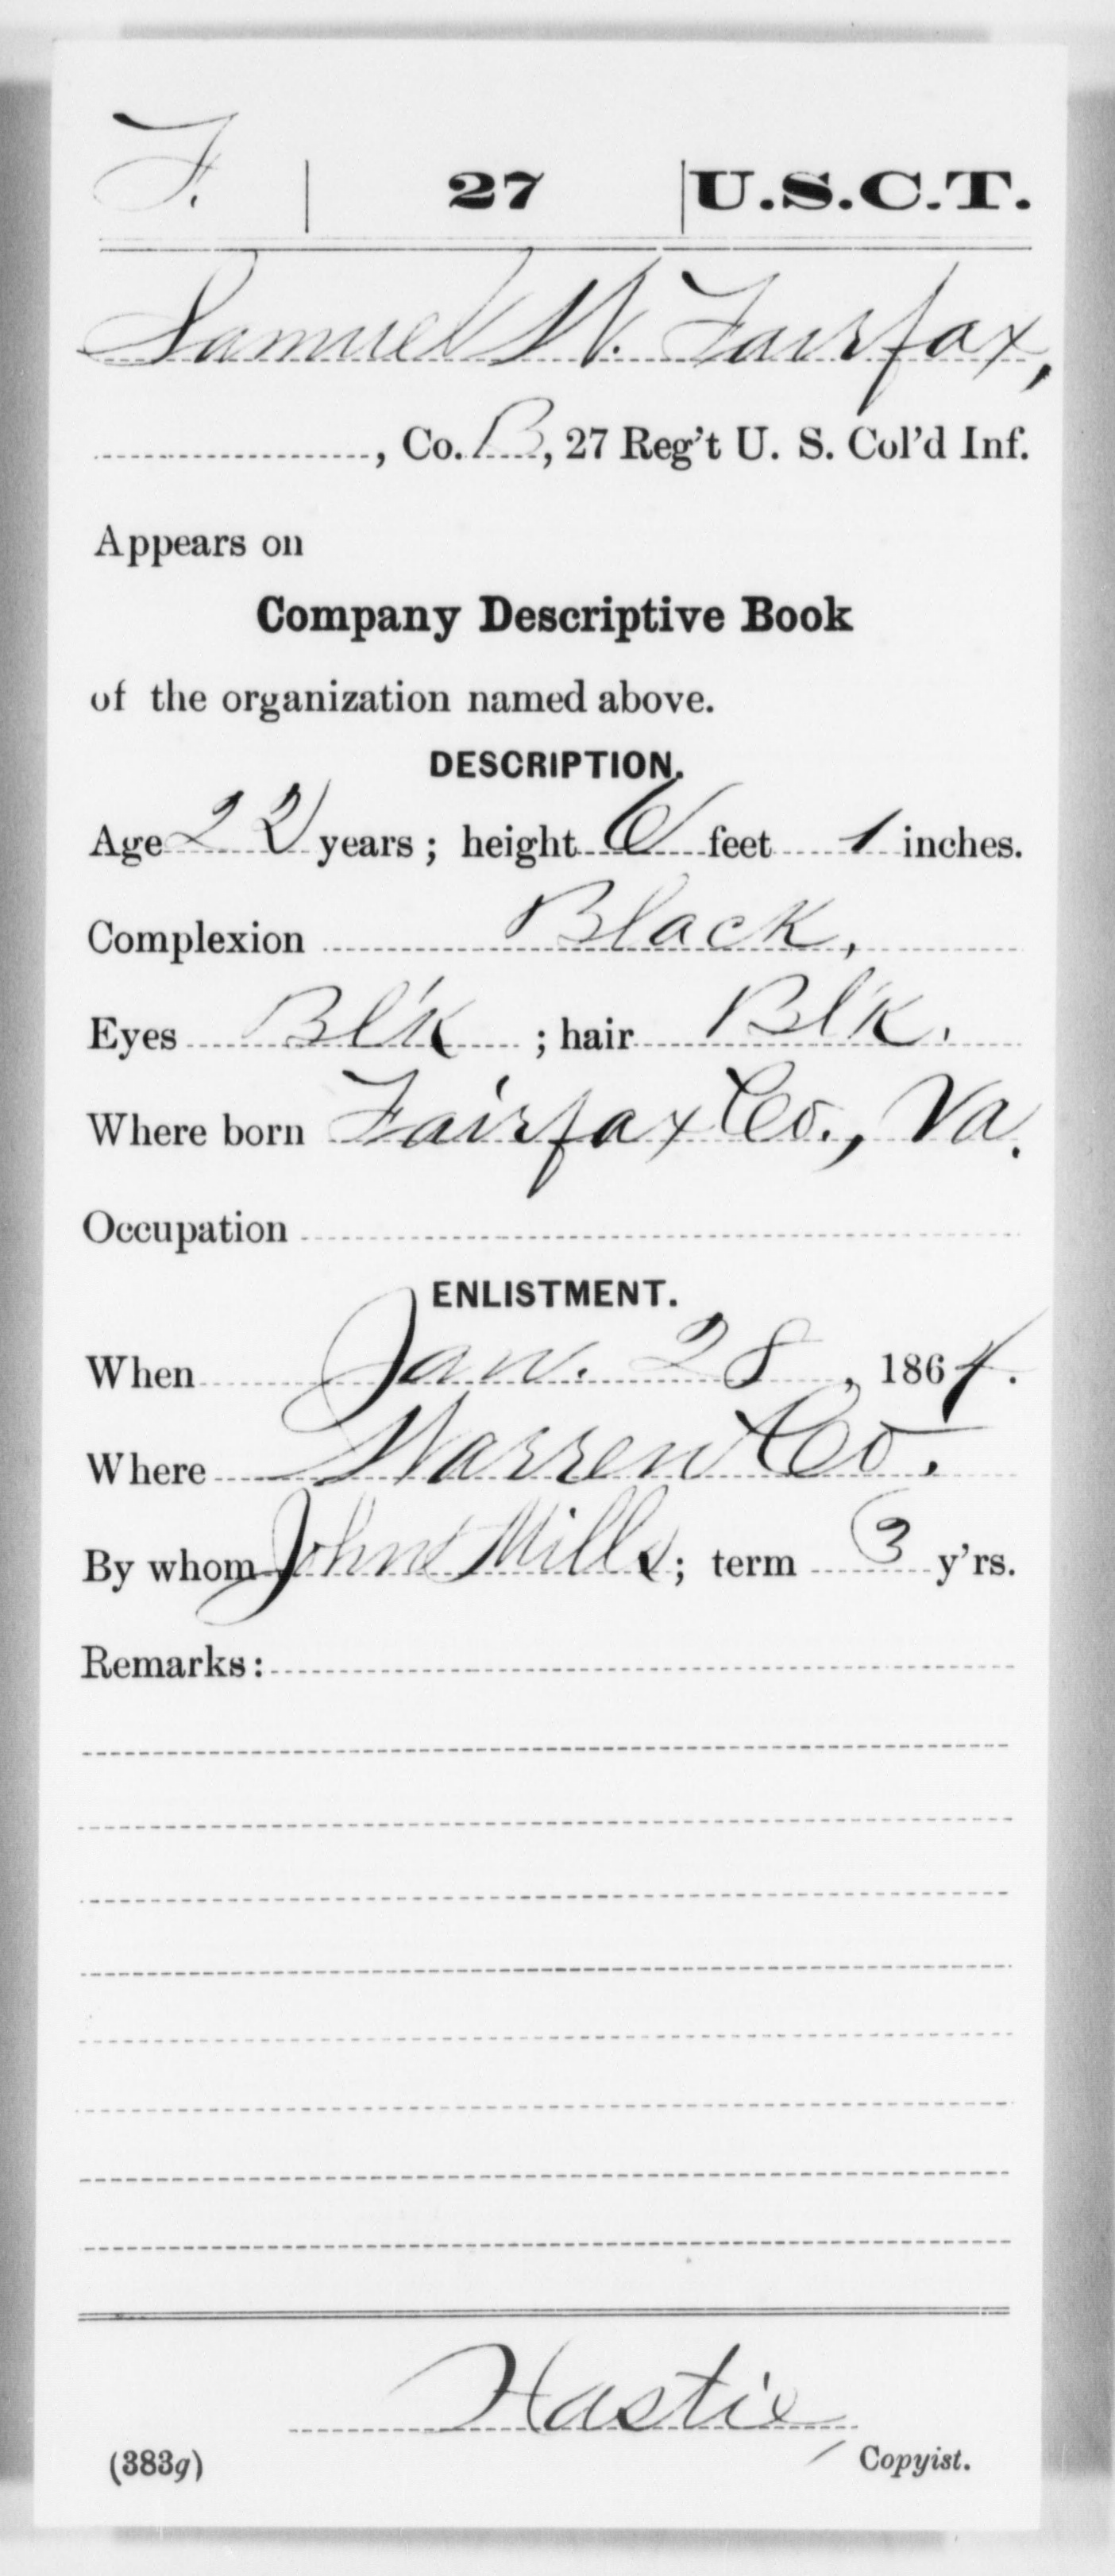 F. | 27 | U.S.C.T.
Samuel W. Fairfax,
, Co. B, 27 Reg't U. S. Col'd Inf.
Appears on
Company Descriptive Book
of the organization named above.
DESCRIPTION.
Age 22 years; height 6 feet 1 inches.
Complexion Black,
Eyes Bl'k ; hair Bl'k.
Where born Fairfax Co., Va.
Occupation
ENLISTMENT.
When Jan. 28, 1864.
Where Warren Co.
By whom Mills; term 3 y'rs.
Remarks:
Hastie,
(383g) Copyist.